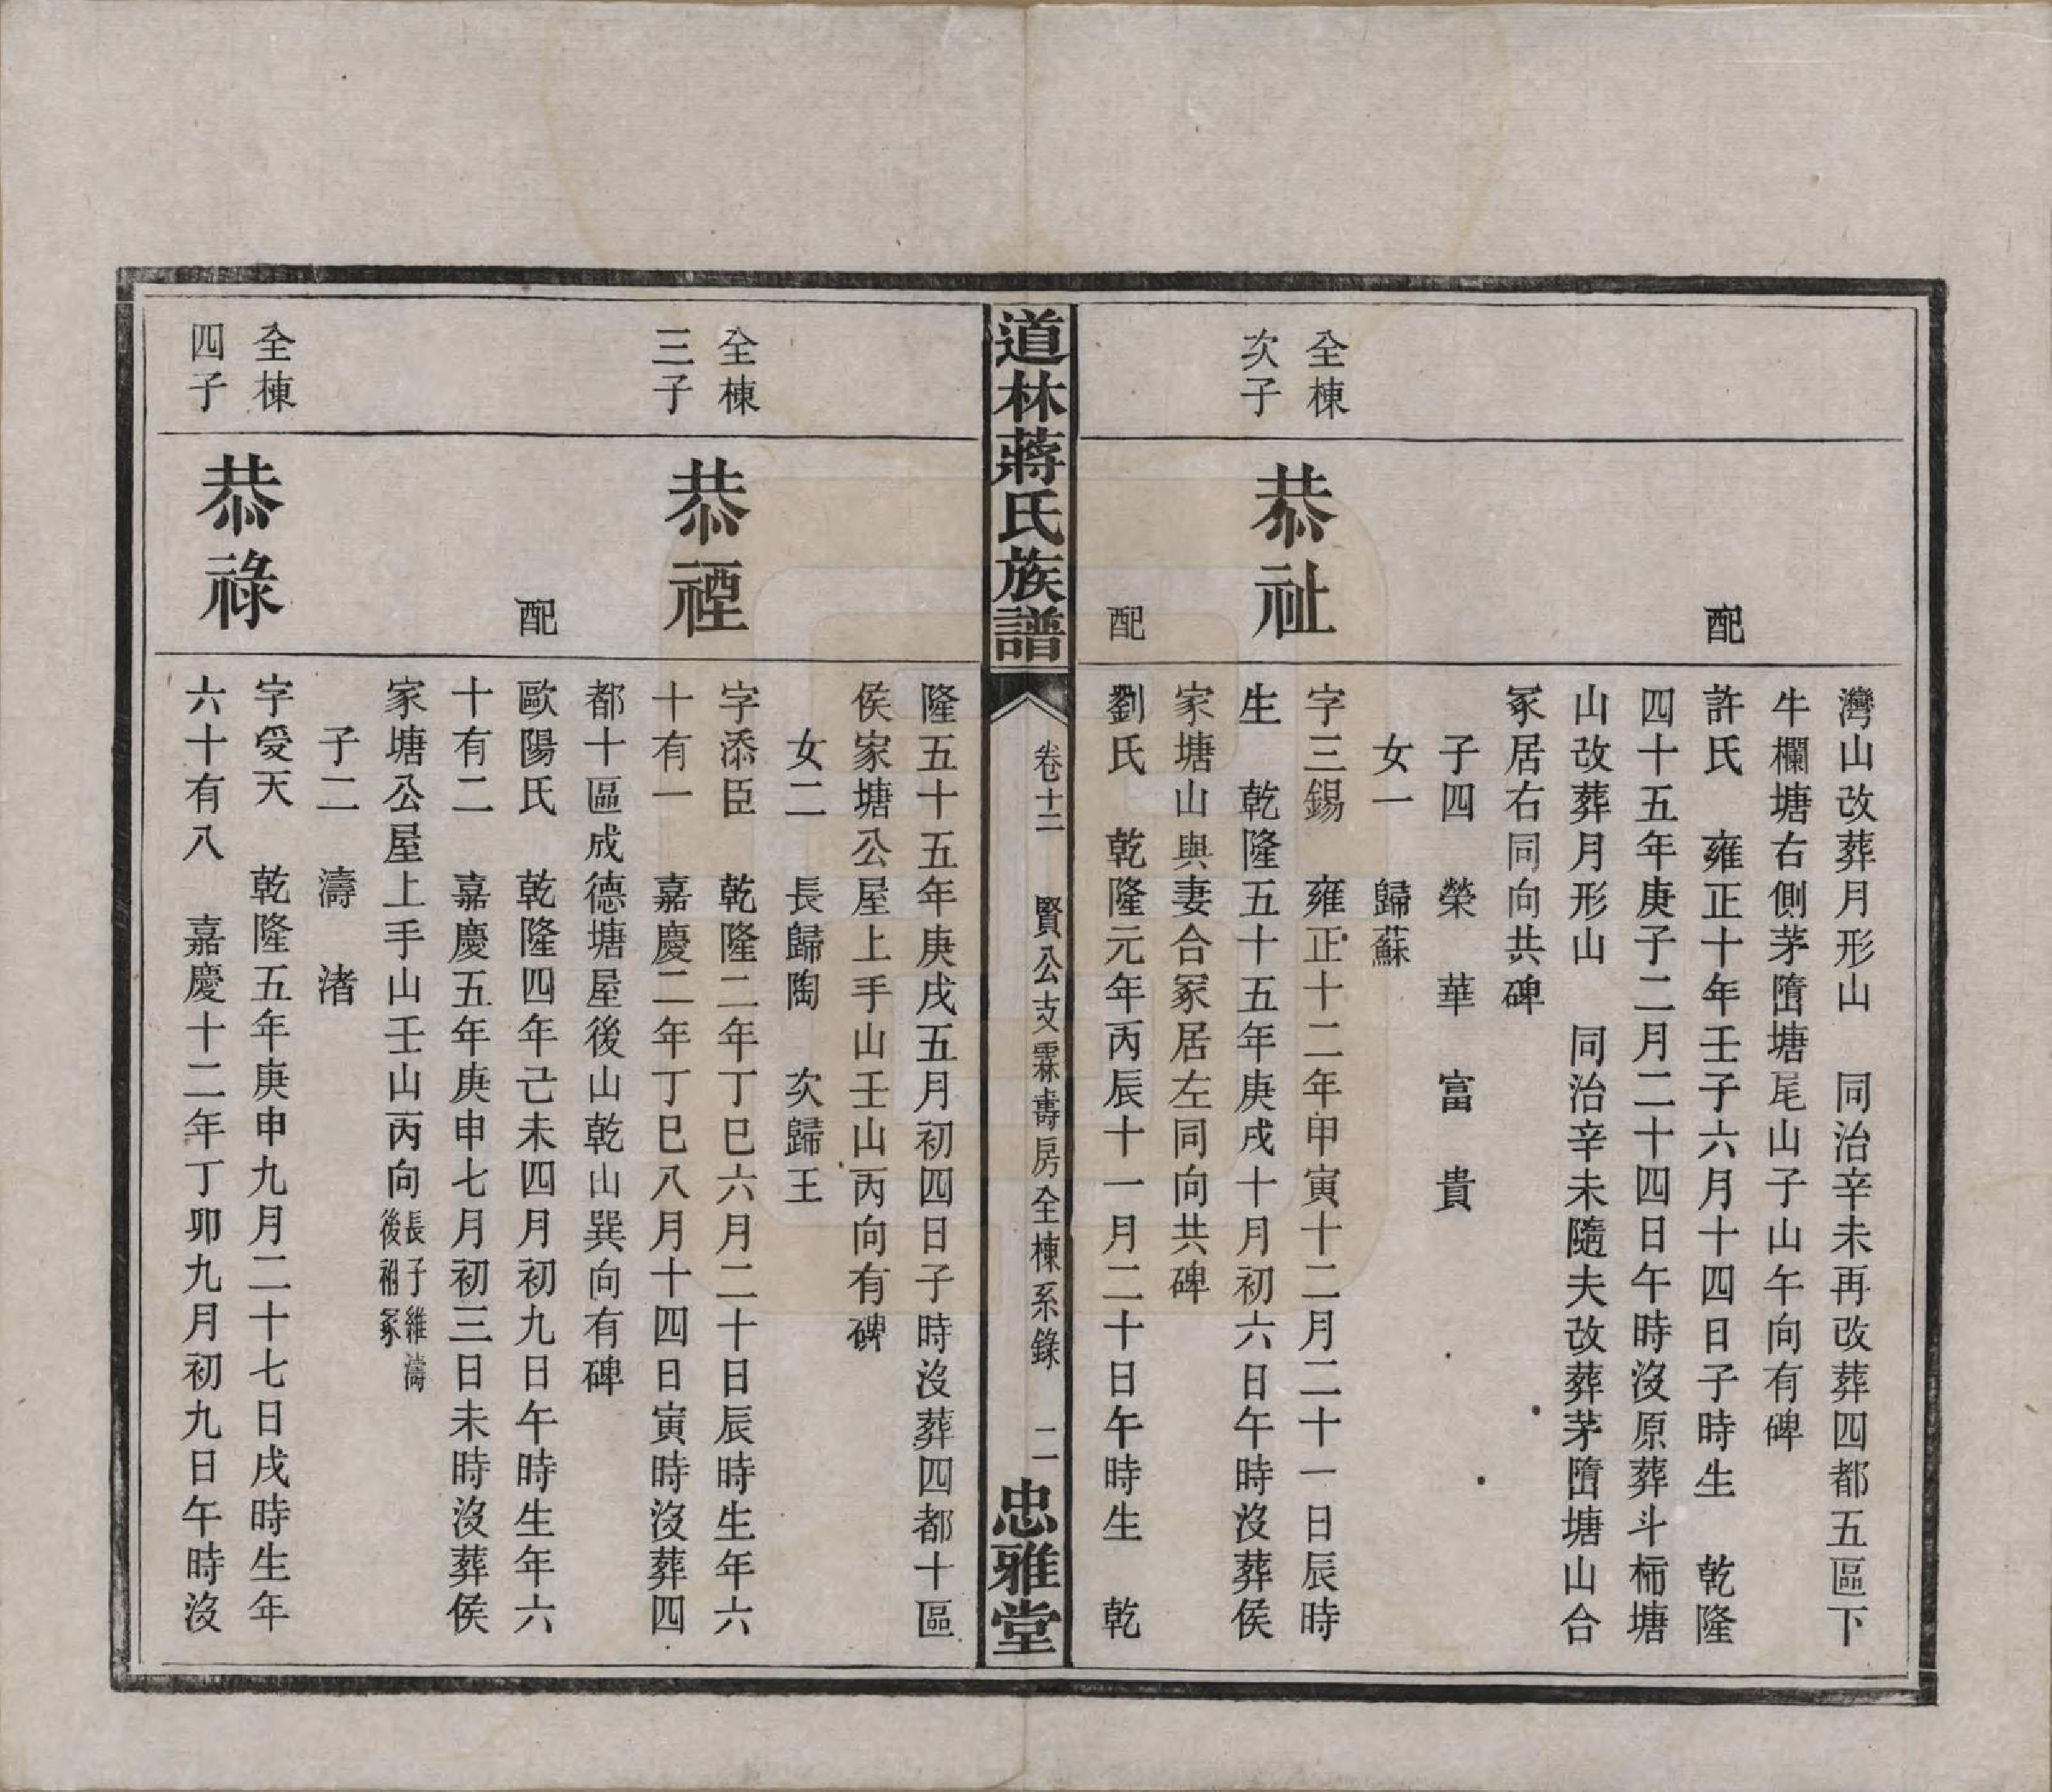 灣山改葬月形山　同治辛未再改葬四都五區下
牛欄塘右側茅隋塘尾山子山午向有碑
配
許氏　雍正十年壬子六月十四日子時生　乾隆
四十五年庚子二月二十四日午時沒原葬斗柿塘
山改葬月形山　同治辛未隨夫改葬茅隋塘山合
冢居右同向共碑
子四　榮　華　富　貴
女一　歸蘇
全棟
次子
恭祉
字三錫　雍正十二年甲寅十二月二十一日辰時
生　乾隆五十五年庚戌十月初六日午時沒葬侯
家塘山與妻合冢居左同向共碑
配
劉氏　乾隆元年丙辰十一月二十日午時生　乾
道林蔣氏族譜
卷十二　賢公支霖壽房全棟系錄　二
忠雅堂
隆五十五年庚戌五月初四日子時沒葬四都十區
侯家塘公屋上手山壬山丙向有碑
女二　長歸陶　次歸王
全棟
三子
恭禋
字添臣　乾隆二年丁巳六月二十日辰時生年六
十有一　嘉慶二年丁巳八月十四日寅時沒葬四
都十區成德塘屋後山乾山巽向有碑
配
歐陽氏　乾隆四年己未四月初九日午時生年六
十有二　嘉慶五年庚申七月初三日未時沒葬侯
家塘公屋上手山壬山丙向長子維濤後祔冢
子二　濤　渚
全棟
四子
恭祿
字受天　乾隆五年庚申九月二十七日戌時生年
六十有八　嘉慶十二年丁卯九月初九日午時沒